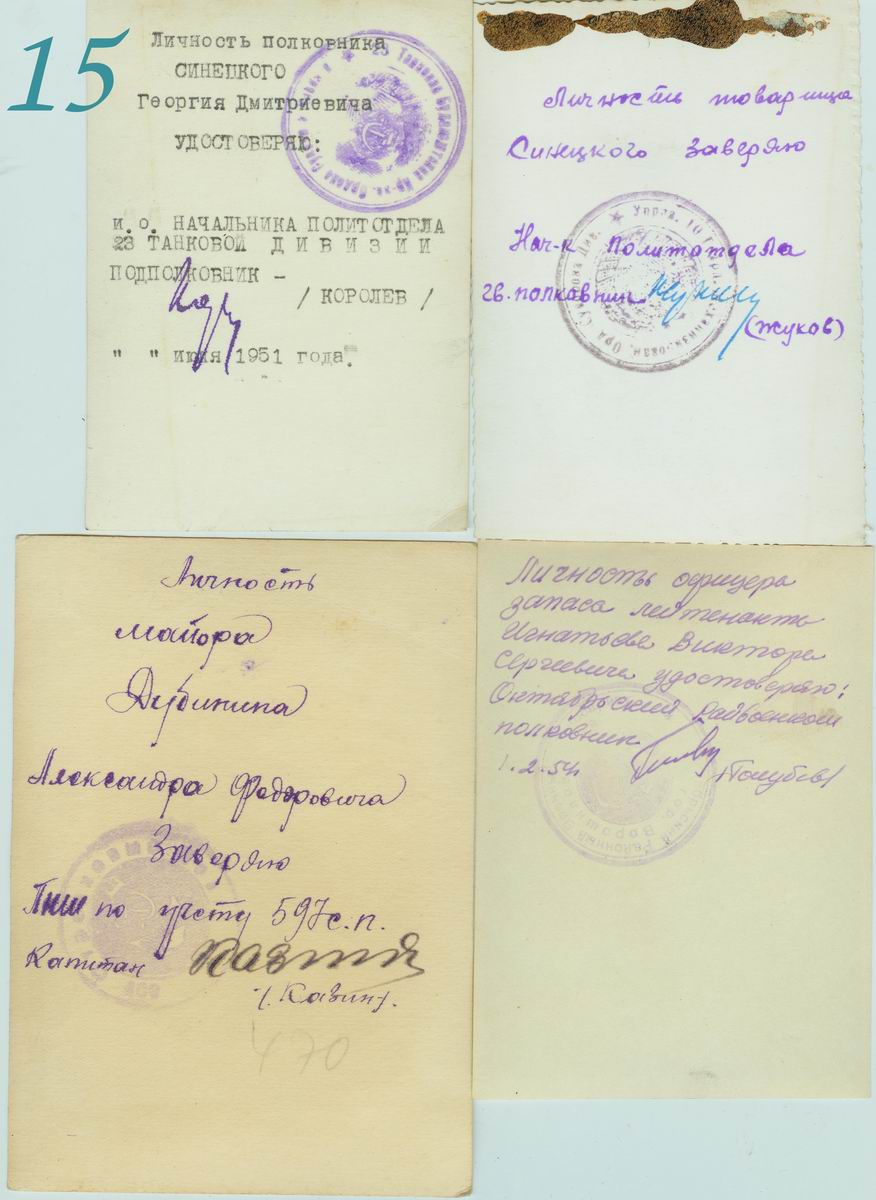 15
Личность полковника
СИНЕЦКОГО
Георгия Дмитриевича
УДОСТОВЕРЯЮ:
и.о. НАЧАЛЬНИКА ПОЛИТОТДЕЛА
23 ТАНКОВОЙ ДИВИЗИИ
ПОДПОЛКОВНИК –
/ КОРОЛЕВ /
" " июня 1951 года.
Личность товарища
Синецкого Заверяю
Нач-к Политотдела
гв. полковник
(Жуков)
Личность
майора
Дубинина
Александра Федоровича
Заверяю
ПНШ по учету 597 с.п.
Капитан
(Казин).
470
Личность офицера
запаса лейтенанта
Игнатьева Виктора
Сергеевича удостоверяю:
Октябрьский Райвоенком
полковник
1.2.54 /Голубев/